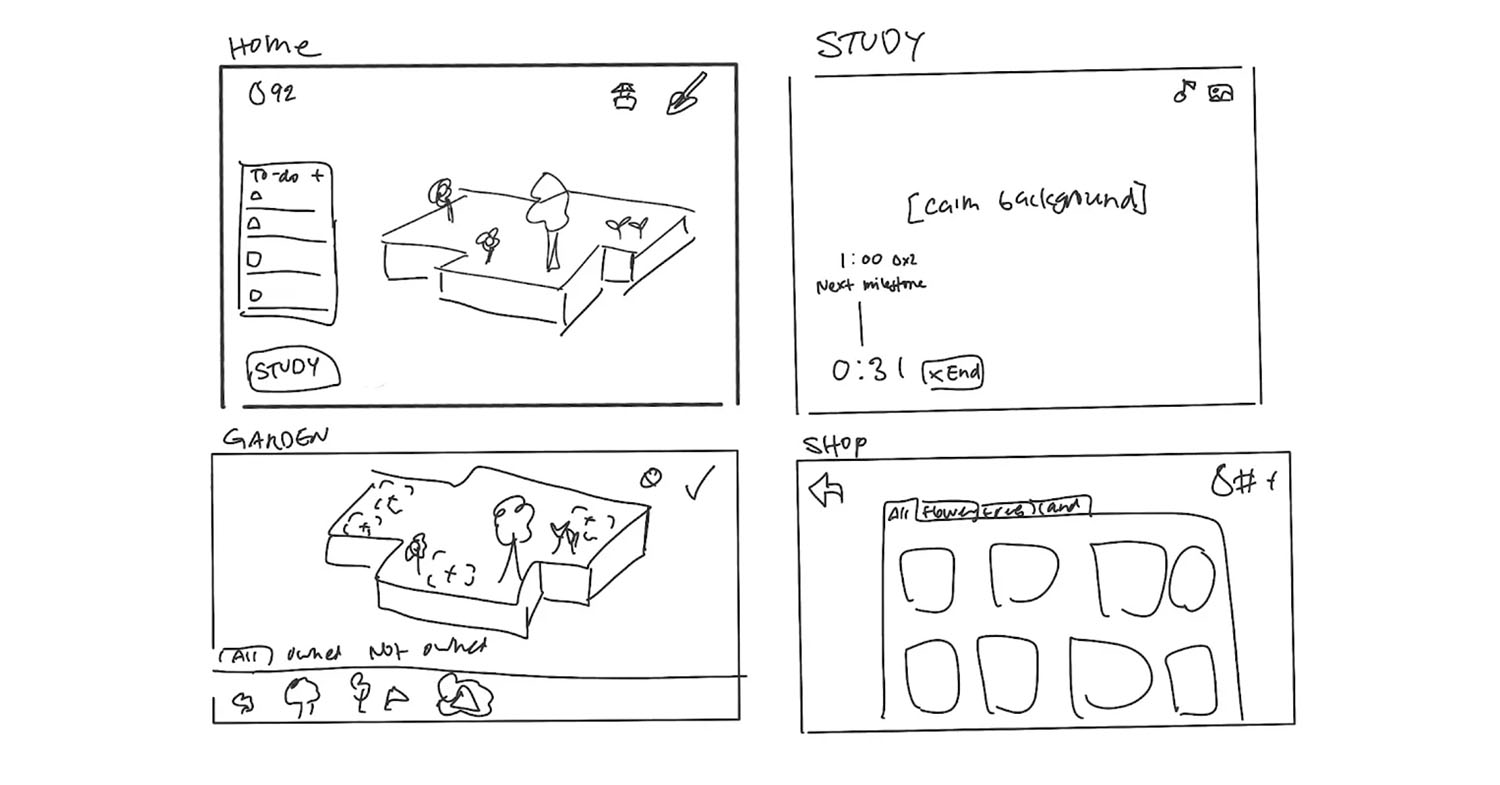 Home
92
To-do +
STUDY
STUDY
[calm background]
1:00 x2
Next milestone
0:31 x End
GARDEN
[+]
[+]
[+]
[+]
All owned Not owned
SHOP
# +
All Flower Trees Land